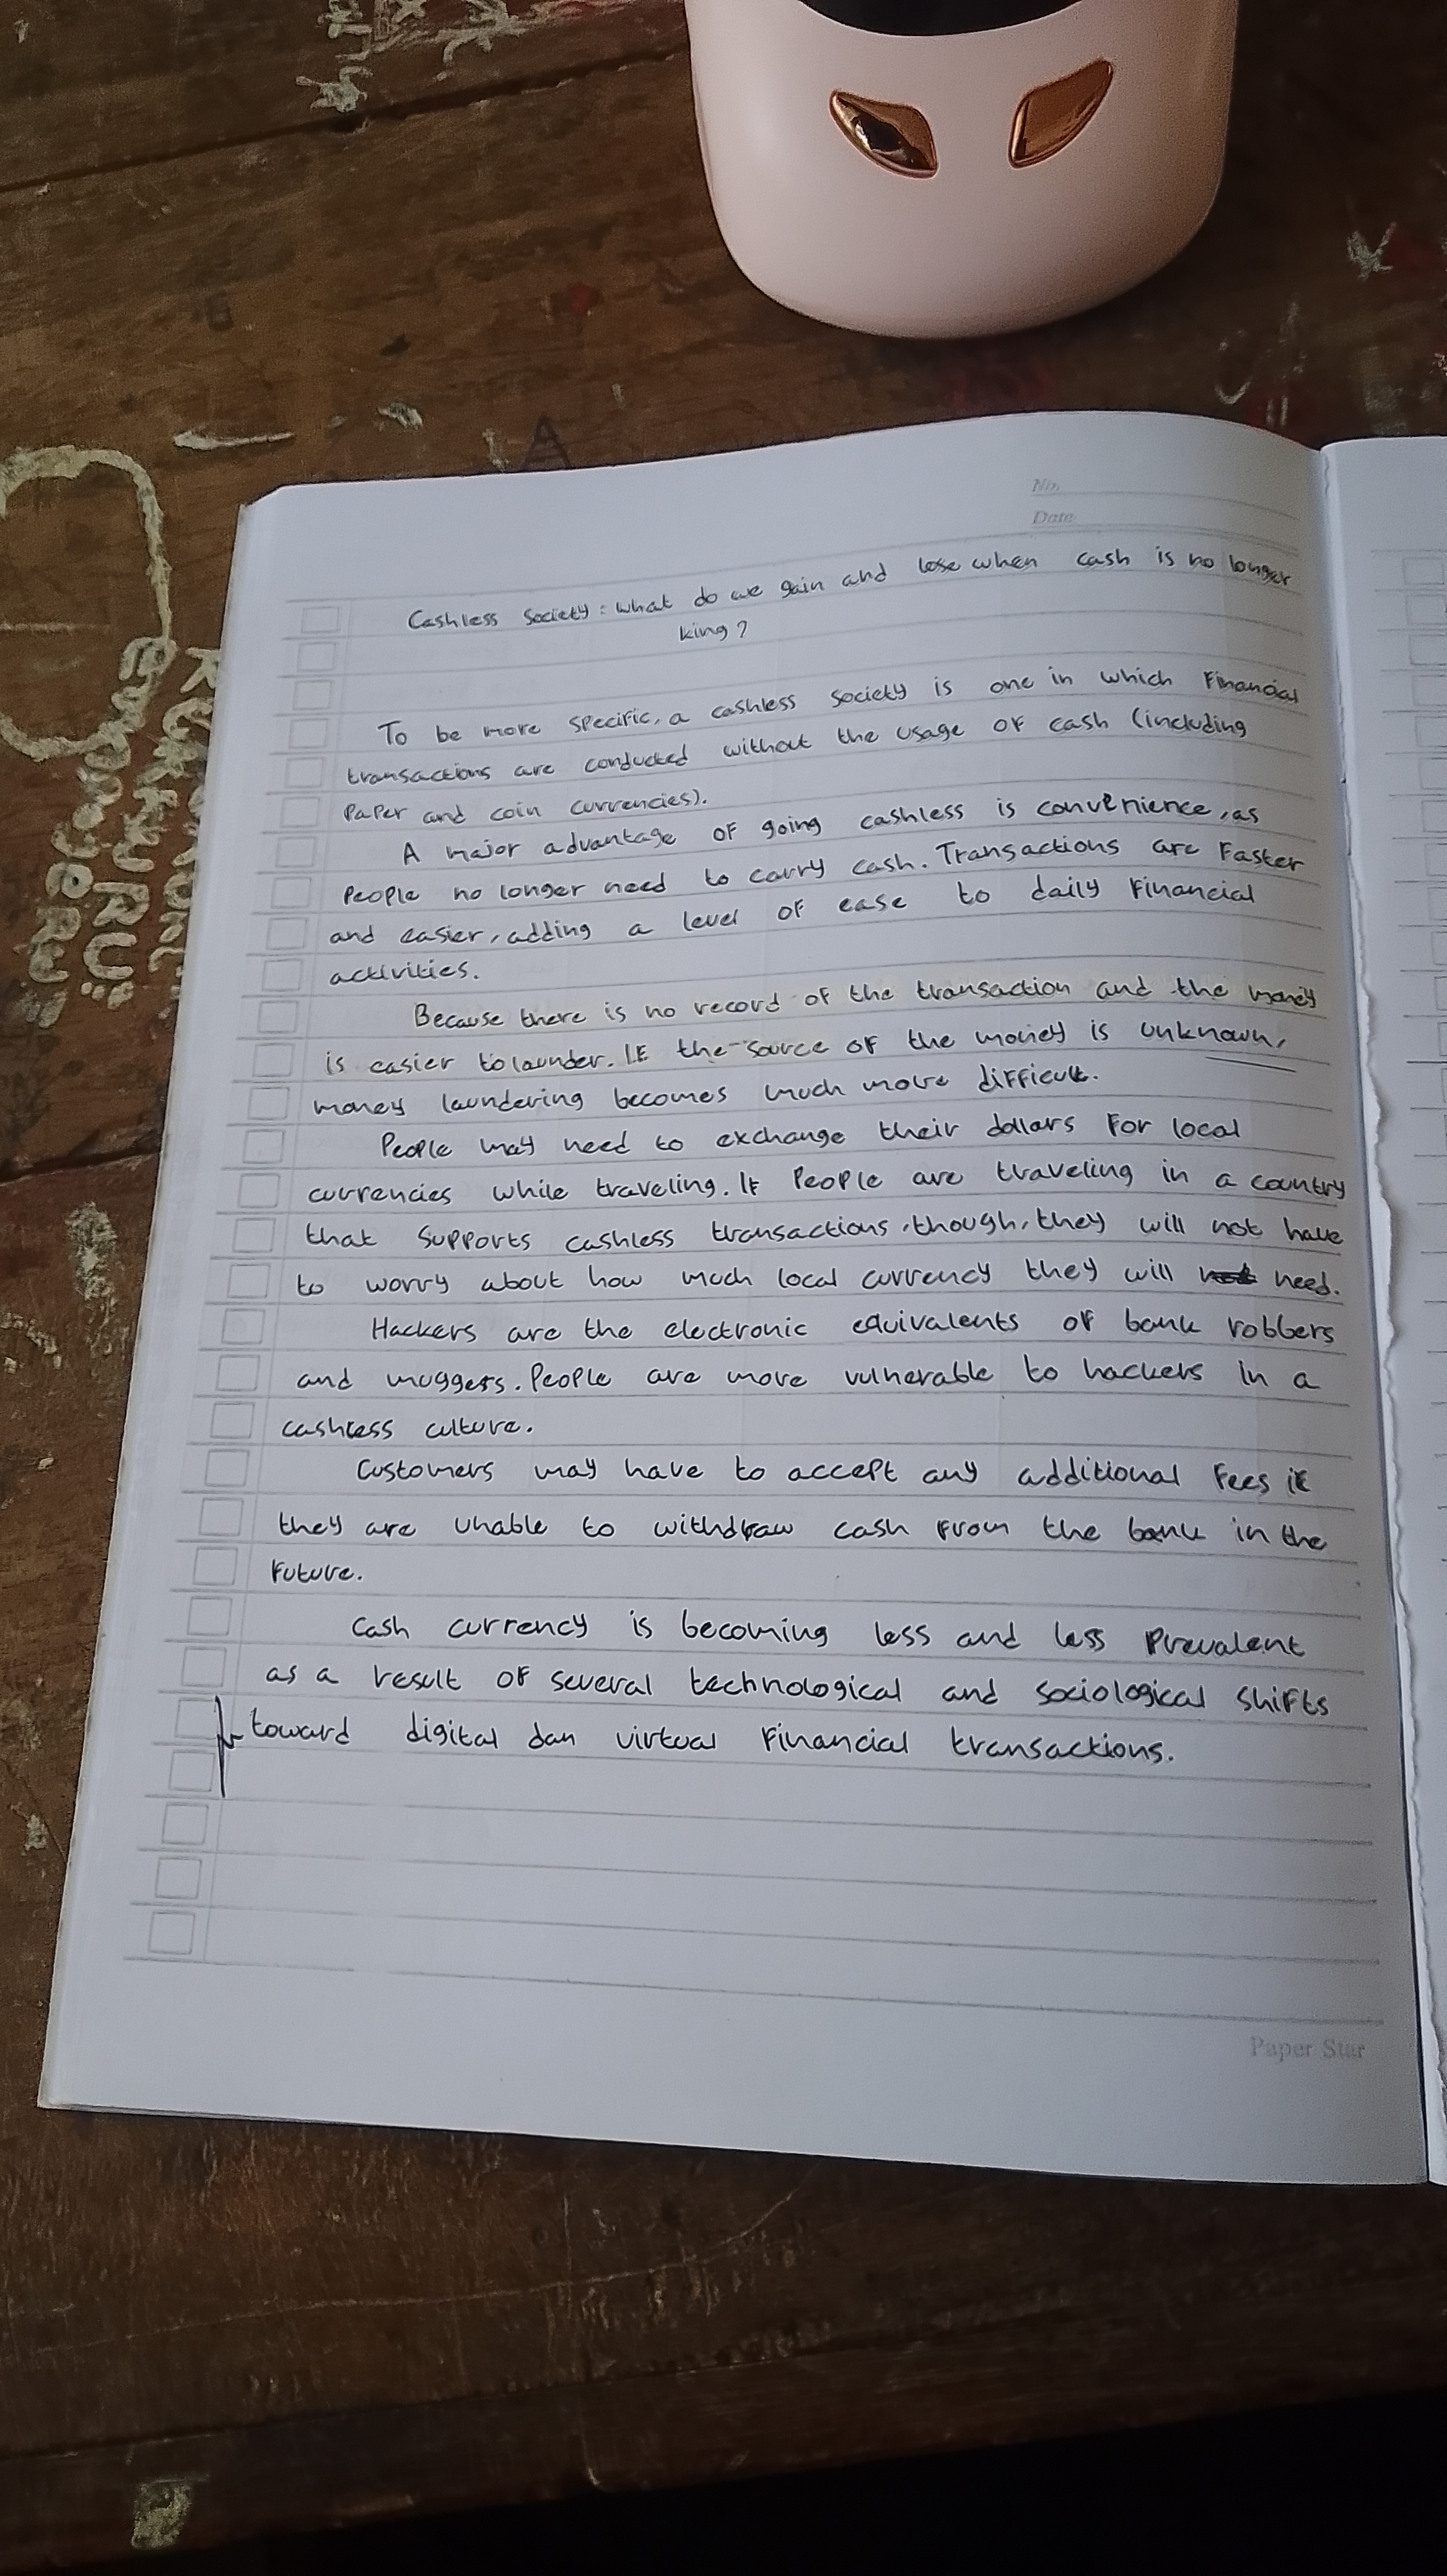 No.
Date
Cashless Society : What do we gain and lose when cash is no longer
king ?
To be more specific, a cashless society is one in which Financial
transactions are conducted without the usage of cash (including
Paper and coin currencies).
A major advantage of going cashless is convenience, as
People no longer need to carry cash. Transactions are Faster
and easier, adding a level of ease to daily Financial
activities.
Because there is no record of the transaction and the money
is easier to launder. IF the source of the money is unknown,
money laundering becomes much more difficult.
People may need to exchange their dollars For local
currencies while traveling. If People are traveling in a country
that supports cashless transactions, though, they will not have
to worry about how much local currency they will need.
Hackers are the electronic equivalents of bank robbers
and muggers. People are more vulnerable to hackers in a
cashless culture.
Customers may have to accept any additional Fees if
they are unable to withdraw cash From the bank in the
Future.
Cash currency is becoming less and less Prevalent
as a result of several technological and sociological shifts
toward digital dan virtual Financial transactions.
Paper Star